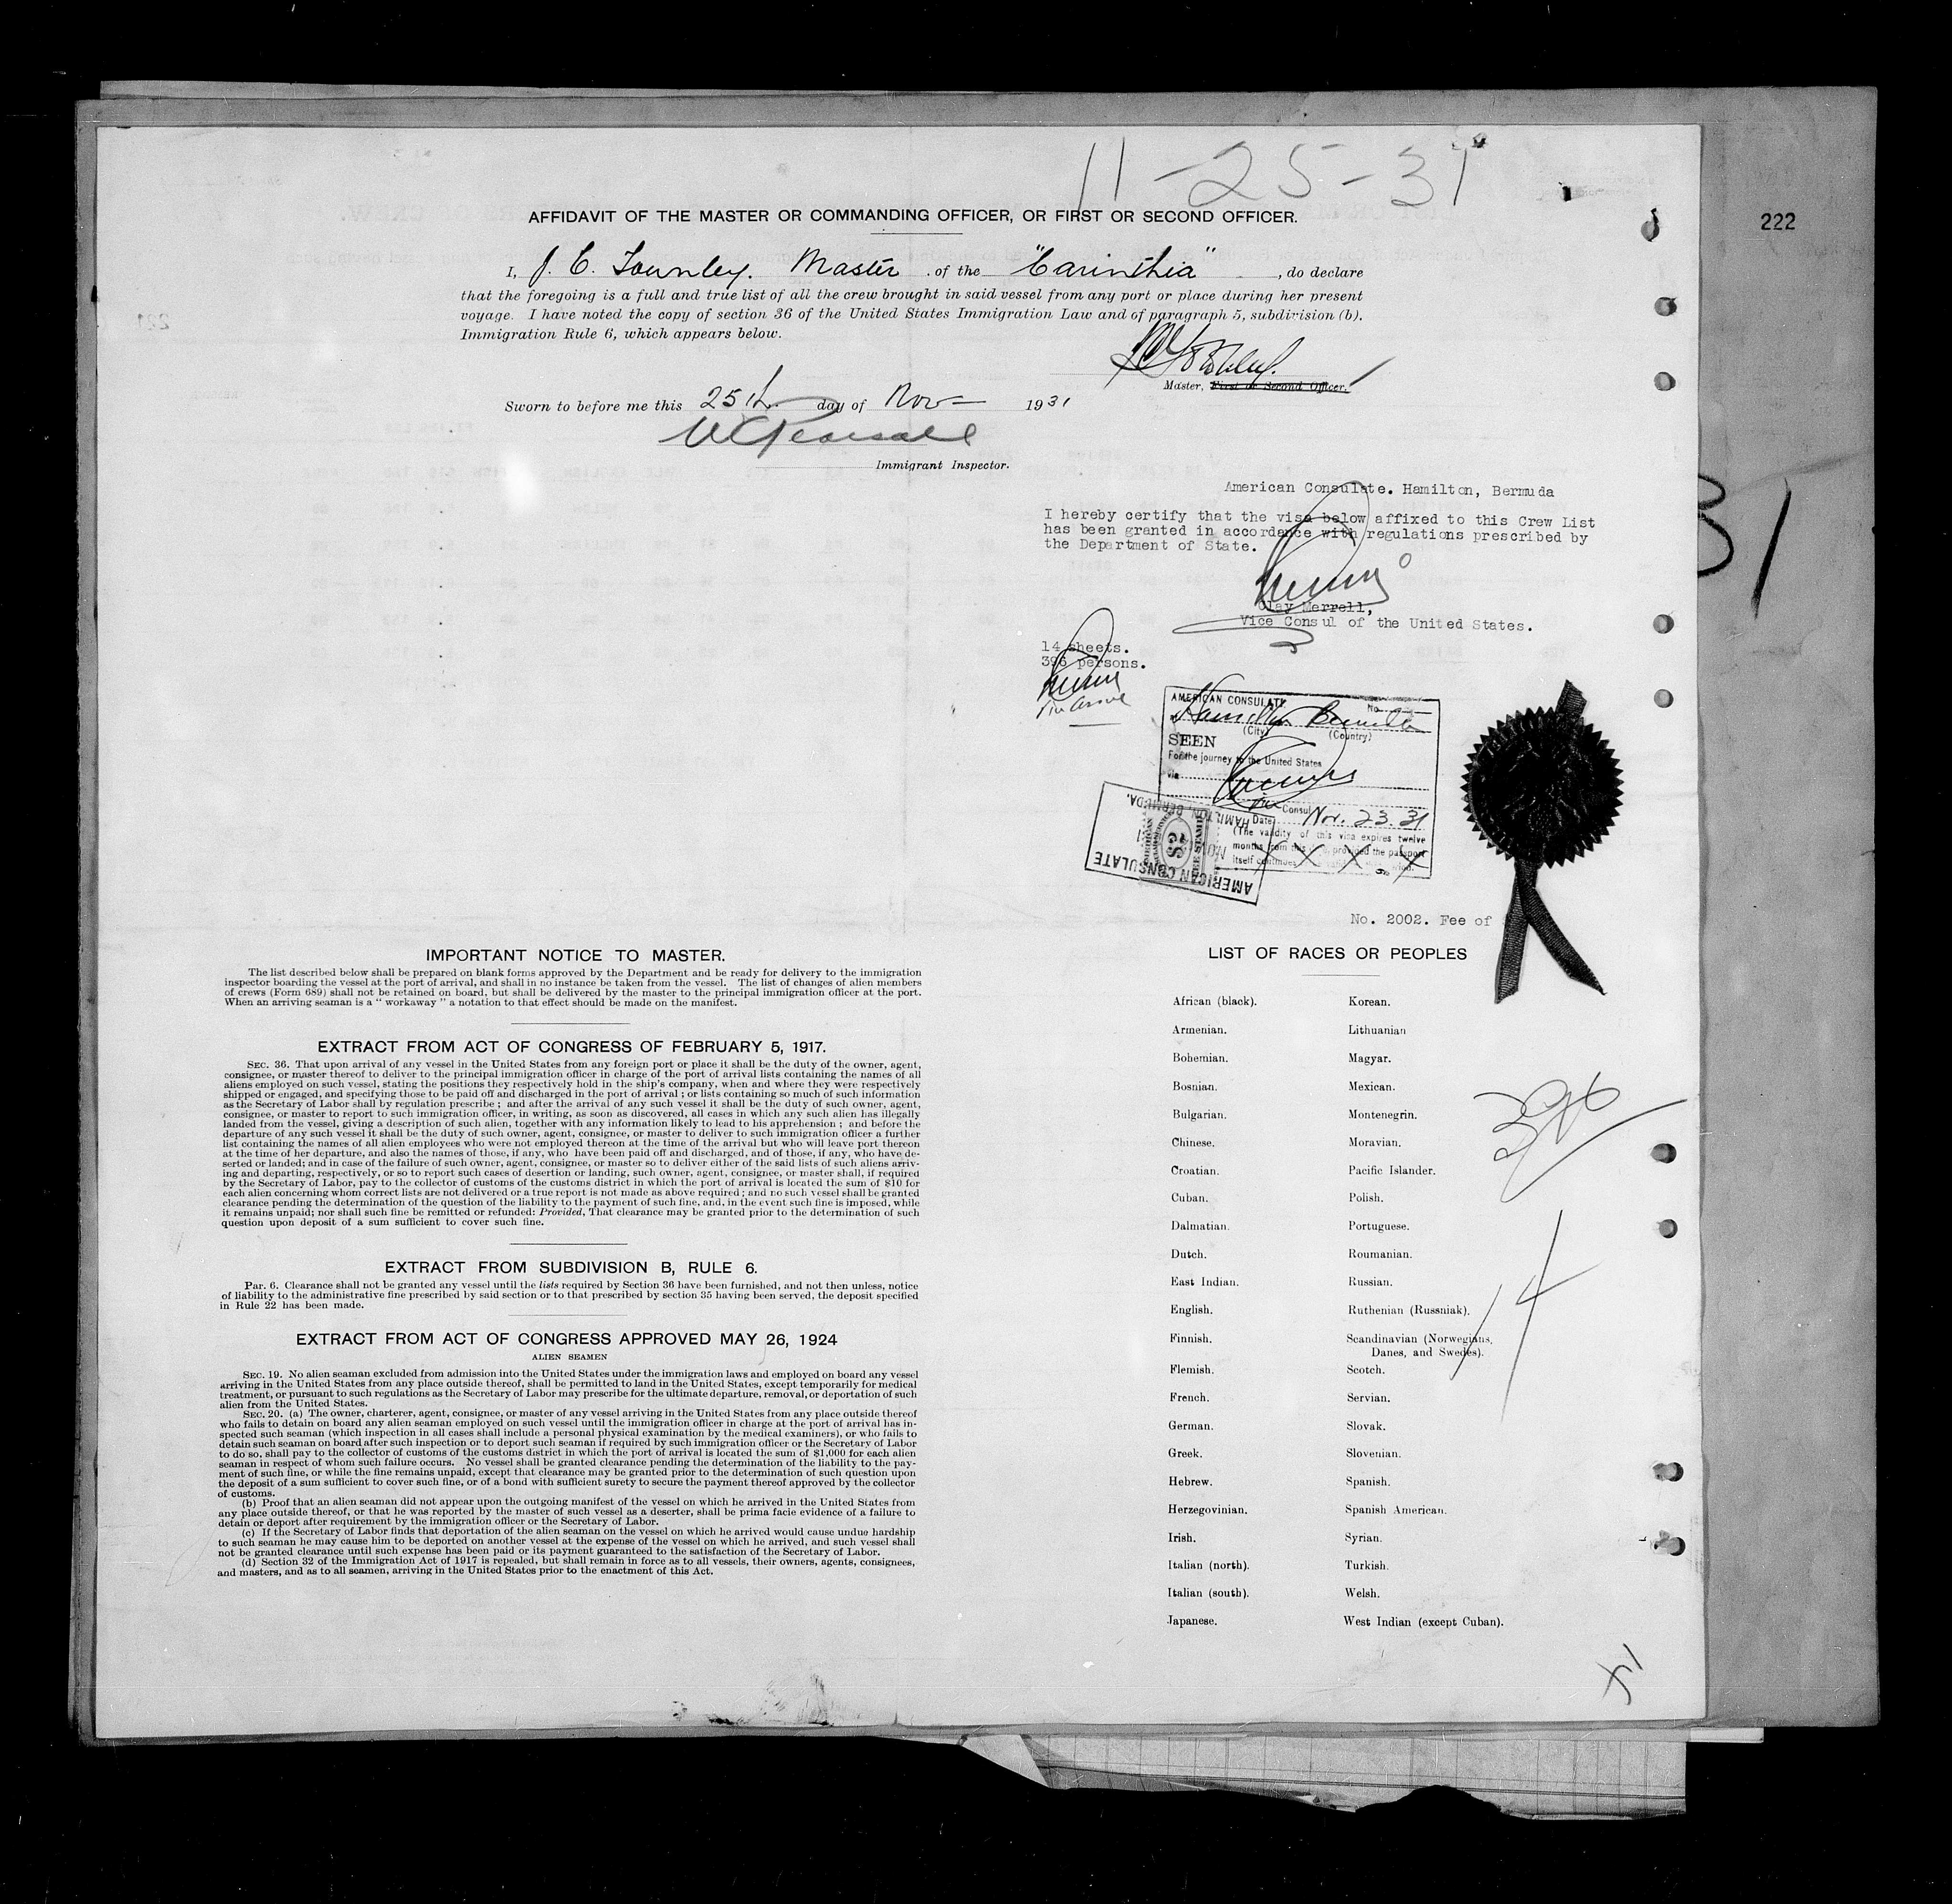 11-25-31
222
AFFIDAVIT OF THE MASTER OR COMMANDING OFFICER, OR FIRST OR SECOND OFFICER.
I, J. C. Townley. Master of the "Carinthia", do declare
that the foregoing is a full and true list of all the crew brought in said vessel from any port or place during her present
voyage. I have noted the copy of section 36 of the United States Immigration Law and of paragraph 5, subdivision (b).
Immigration Rule 6, which appears below.
Master, First or Second Officer.
Sworn to before me this 25th day of Nov 1931
Immigrant Inspector.
31
American Consulate. Hamilton, Bermuda
I hereby certify that the visa below affixed to this Crew List
has been granted in accordance with regulations prescribed by
the Department of State.
Clay Merrell,
Vice Consul of the United States.
14 sheets.
396 persons.
AMERICAN CONSULATE No.
Hamilton Bermuda
(City) (Country)
SEEN
For the journey to the United States
via
Consul
Date Nov. 23. 31
(The validity of this visa expires twelve
months from this date, provided the passport
itself continues
AMERICAN CONSULATE
HAMILTON, BERMUDA.
NOV
$2
No. 2002. Fee of
IMPORTANT NOTICE TO MASTER.
The list described below shall be prepared on blank forms approved by the Department and be ready for delivery to the immigration
inspector boarding the vessel at the port of arrival, and shall in no instance be taken from the vessel. The list of changes of alien members
of crews (Form 689) shall not be retained on board, but shall be delivered by the master to the principal immigration officer at the port.
When an arriving seaman is a " workaway " a notation to that effect should be made on the manifest.
EXTRACT FROM ACT OF CONGRESS OF FEBRUARY 5, 1917.
SEC. 36. That upon arrival of any vessel in the United States from any foreign port or place it shall be the duty of the owner, agent,
consignee, or master thereof to deliver to the principal immigration officer in charge of the port of arrival lists containing the names of all
aliens employed on such vessel, stating the positions they respectively hold in the ship's company, when and where they were respectively
shipped or engaged, and specifying those to be paid off and discharged in the port of arrival ; or lists containing so much of such information
as the Secretary of Labor shall by regulation prescribe ; and after the arrival of any such vessel it shall be the duty of such owner, agent,
consignee, or master to report to such immigration officer, in writing, as soon as discovered, all cases in which any such alien has illegally
landed from the vessel, giving a description of such alien, together with any information likely to lead to his apprehension ; and before the
departure of any such vessel it shall be the duty of such owner, agent, consignee, or master to deliver to such immigration officer a further
list containing the names of all alien employees who were not employed thereon at the time of the arrival but who will leave port thereon
at the time of her departure, and also the names of those, if any, who have been paid off and discharged, and of those, if any, who have de-
serted or landed; and in case of the failure of such owner, agent, consignee, or master so to deliver either of the said lists of such aliens arriv-
ing and departing, respectively, or so to report such cases of desertion or landing, such owner, agent, consignee, or master shall, if required
by the Secretary of Labor, pay to the collector of customs of the customs district in which the port of arrival is located the sum of $10 for
each alien concerning whom correct lists are not delivered or a true report is not made as above required ; and no such vessel shall be granted
clearance pending the determination of the question of the liability to the payment of such fine, and, in the event such fine is imposed, while
it remains unpaid; nor shall such fine be remitted or refunded: Provided, That clearance may be granted prior to the determination of such
question upon deposit of a sum sufficient to cover such fine.
EXTRACT FROM SUBDIVISION B, RULE 6.
Par. 6. Clearance shall not be granted any vessel until the lists required by Section 36 have been furnished, and not then unless, notice
of liability to the administrative fine prescribed by said section or to that prescribed by section 35 having been served, the deposit specified
in Rule 22 has been made.
EXTRACT FROM ACT OF CONGRESS APPROVED MAY 26, 1924
ALIEN SEAMEN
SEC. 19. No alien seaman excluded from admission into the United States under the immigration laws and employed on board any vessel
arriving in the United States from any place outside thereof, shall be permitted to land in the United States, except temporarily for medical
treatment, or pursuant to such regulations as the Secretary of Labor may prescribe for the ultimate departure, removal, or deportation of such
alien from the United States.
SEC. 20. (a) The owner, charterer, agent, consignee, or master of any vessel arriving in the United States from any place outside thereof
who fails to detain on board any alien seaman employed on such vessel until the immigration officer in charge at the port of arrival has in-
spected such seaman (which inspection in all cases shall include a personal physical examination by the medical examiners), or who fails to
detain such seaman on board after such inspection or to deport such seaman if required by such immigration officer or the Secretary of Labor
to do so, shall pay to the collector of customs of the customs district in which the port of arrival is located the sum of $1,000 for each alien
seaman in respect of whom such failure occurs. No vessel shall be granted clearance pending the determination of the liability to the pay-
ment of such fine, or while the fine remains unpaid, except that clearance may be granted prior to the determination of such question upon
the deposit of a sum sufficient to cover such fine, or of a bond with sufficient surety to secure the payment thereof approved by the collector
of customs.
(b) Proof that an alien seaman did not appear upon the outgoing manifest of the vessel on which he arrived in the United States from
any place outside thereof, or that he was reported by the master of such vessel as a deserter, shall be prima facie evidence of a failure to
detain or deport after requirement by the immigration officer or the Secretary of Labor.
(c) If the Secretary of Labor finds that deportation of the alien seaman on the vessel on which he arrived would cause undue hardship
to such seaman he may cause him to be deported on another vessel at the expense of the vessel on which he arrived, and such vessel shall
not be granted clearance until such expense has been paid or its payment guaranteed to the satisfaction of the Secretary of Labor.
(d) Section 32 of the Immigration Act of 1917 is repealed, but shall remain in force as to all vessels, their owners, agents, consignees,
and masters, and as to all seamen, arriving in the United States prior to the enactment of this Act.
LIST OF RACES OR PEOPLES
African (black). Korean.
Armenian. Lithuanian
Bohemian. Magyar.
Bosnian. Mexican.
Bulgarian. Montenegrin.
Chinese. Moravian.
Croatian. Pacific Islander.
Cuban. Polish.
Dalmatian. Portuguese.
Dutch. Roumanian.
East Indian. Russian.
English. Ruthenian (Russniak).
Finnish. Scandinavian (Norwegians,
Danes, and Swedes).
Flemish. Scotch.
French. Servian.
German. Slovak.
Greek. Slovenian.
Hebrew. Spanish.
Herzegovinian. Spanish American.
Irish. Syrian.
Italian (north). Turkish.
Italian (south). Welsh.
Japanese. West Indian (except Cuban).
396
14